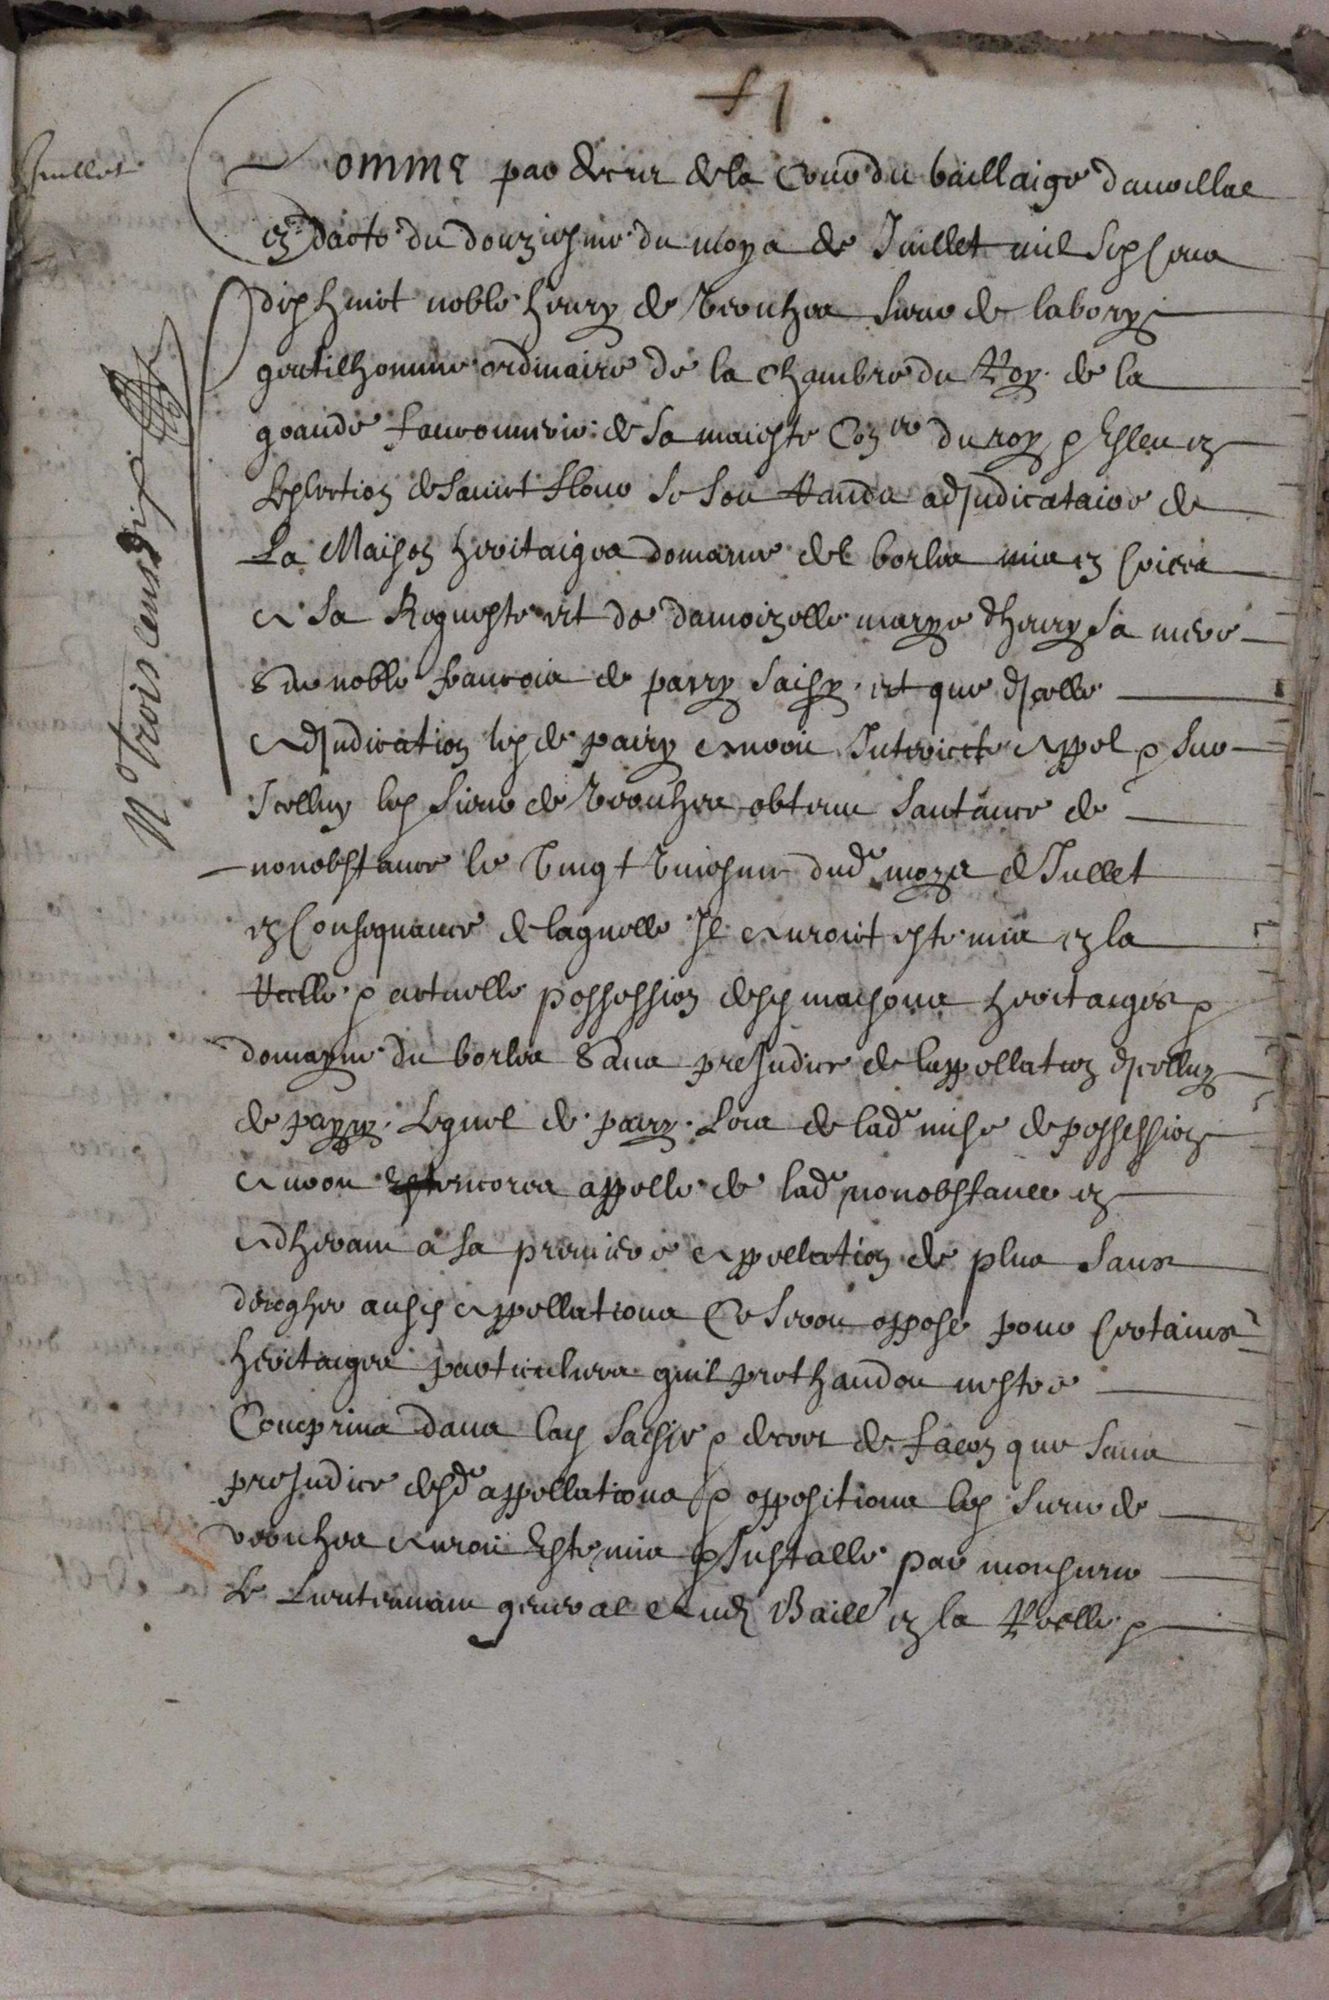 Juillet
Comme par decret de la Cour du bailliaige daurillac
en datte du douziesme du moys de Juillet mil six cens
dix huict noble henry de Veouhes sieur de labory
gentilhomme ordinaire de la chambre du Roy de la
grande fauconnerie de sa maieste Con.er du roy & Esleu en
Leslection de sainct flour se seroit randu adjudicataire de
La Maison heritaiges domayne del borles mis en criees
a sa Requeste et de damoizelle marye dhenry sa mere
sur noble francois de parry saisy et que dicelle
adjudication led de parry auroit Interiecte appel & sur
Icelluy led sieur de Veouhes obtenu santance de
nonobstance le vingt uniesme dud moys de Juillet
en Consequance de laquelle Il auroit este mis en la
Reelle & actuelle possession desd maisons heritaiges &
domayne du borles sans preJudice de lappellation dicelluy
de parry Lequel de parry Lors de lad mise de possession
auroit encores appelle de lad nonobstance en
adherant a sa premiere appellation de plus sans
deroger ausd appellations Ce seroit oppose pour certains
heritaiges particuliers quil prethandoit nestre
Comprins dans lad saisie & decret de facon que sans
preJudice desd appellations & oppositions led sieur de
veouhes auroit Este mis & Installe par monsieur
Le Lieutenant general aud Baill en la Reelle &
N° Trois cens dix